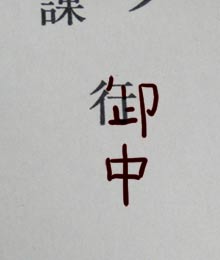 課
御中